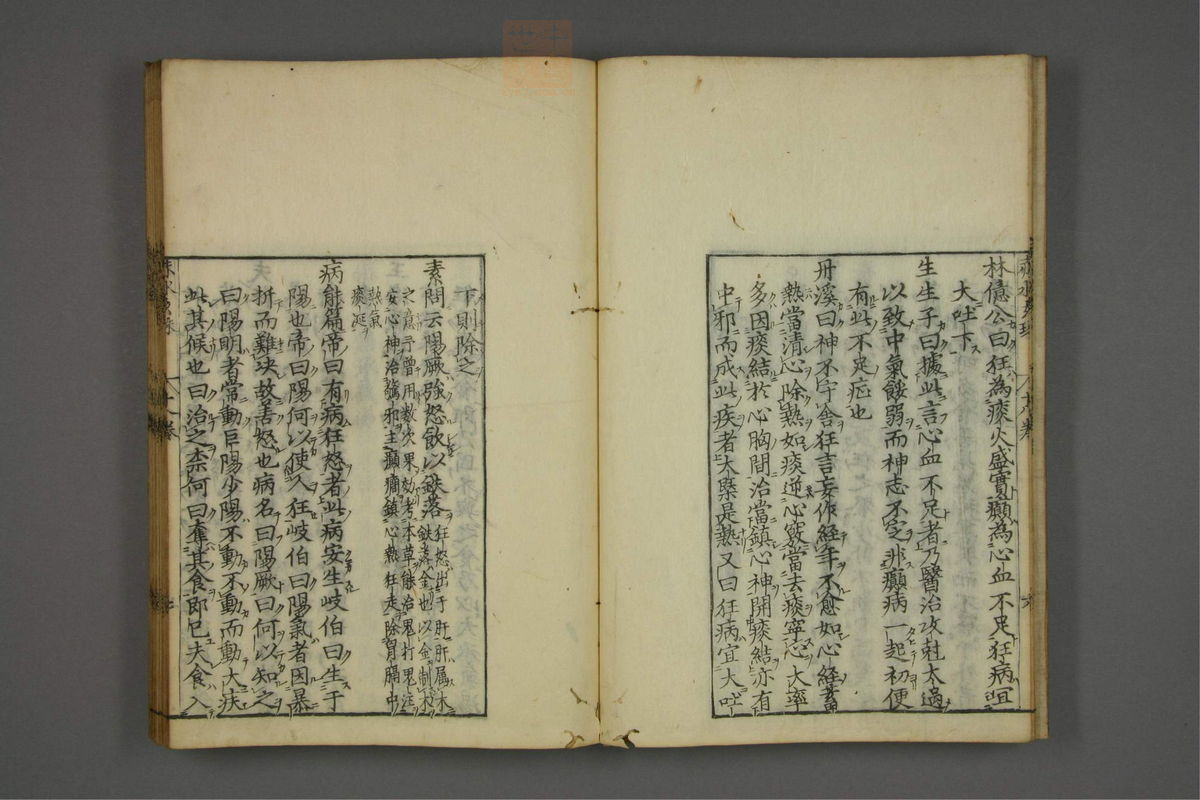 林億公曰狂為痰火盛實癲為心血不足狂病宜
大吐下
生生子曰據此言心血不足者乃醫治攻尅太過
以致中氣餒弱而神志不定非癲病一起初便
有此不足症也
丹溪曰神不守舍狂言妄作經年不愈如心經蓄
熱當清心除熱如痰逆心竅當去痰寧心大率
多因痰結於心胸間治當鎮心神開痰結亦有
中邪而成此疾者大槩是熱又曰狂病宜大吐
下則除之
素問云陽厥強怒飲以鉄落
狂怒出于肝肝属木
鉄落金也以金制木
之意予曾用数次果効考本草能治鬼打鬼注
安心神治驚邪主癲癇鎮心熱狂走除胃膈中
熱氣
痰涎
病能篇帝曰有病狂怒者此病安生岐伯曰生于
陽也帝曰陽何以使人狂岐伯曰陽氣者因暴
折而難决故善怒也病名曰陽厥曰何以知之
曰陽明者常動巨陽少陽不動不動而動大疾
此其候也曰治之柰何曰奪其食即已夫食入